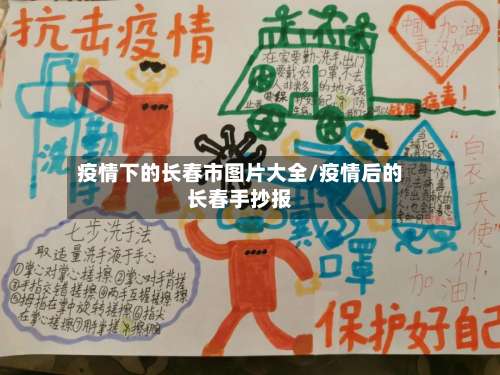 抗击疫情
中国加油
武汉加
油!
在家要勤洗手出门
要戴好口罩不去
人非常多的地方
病毒!
勤
洗手
疫情下的长春市图片大全/疫情后的
长春手抄报
戴
口罩
"白衣天使"
们
加油!
七步洗手法
取适量洗手液于手心
①掌心对掌心搓擦②掌心对手背搓
③手指交错搓擦④两手互握搓擦
⑤拇指在掌中旋转搓擦⑥指尖
在掌心搓擦⑦
保护好自己